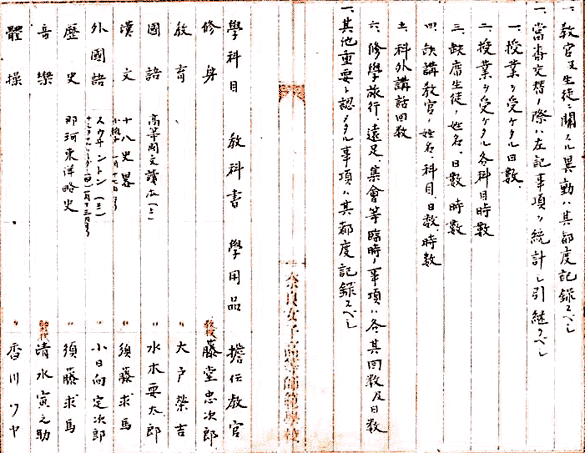 一、教官及生徒ニ關スル異動ハ其都度記録スベシ
一、當番交替ノ際ハ左記事項ヲ統計シ引継グベシ
一、授業ヲ受ケタル日數
二、授業ヲ受ケタル各科目時數
三、缺席生徒ノ姓名、日數、時數
四、缺講教官ノ姓名、科目、日數、時數
五、科外講話回數
六、修學旅行、遠足、集會等臨時ノ事項ハ各其回數及日數
一、其他重要ト認メタル事項ハ其都度記録スベシ
奈良女子高等師範學校
學科目 教科書 學用品 擔任教官
修身 教授 藤堂忠次郎
教育 〃 大戸榮吉
國語 高等國文讀本(三) 〃 水木要太郎
漢文 十八史畧 〃 須藤求馬
外國語 スウヰントン(三) 〃 小日向定次郎
歴史 那珂東洋略史 〃 須藤求馬
音樂 清水寅之助
體操 〃 香川ツヤ